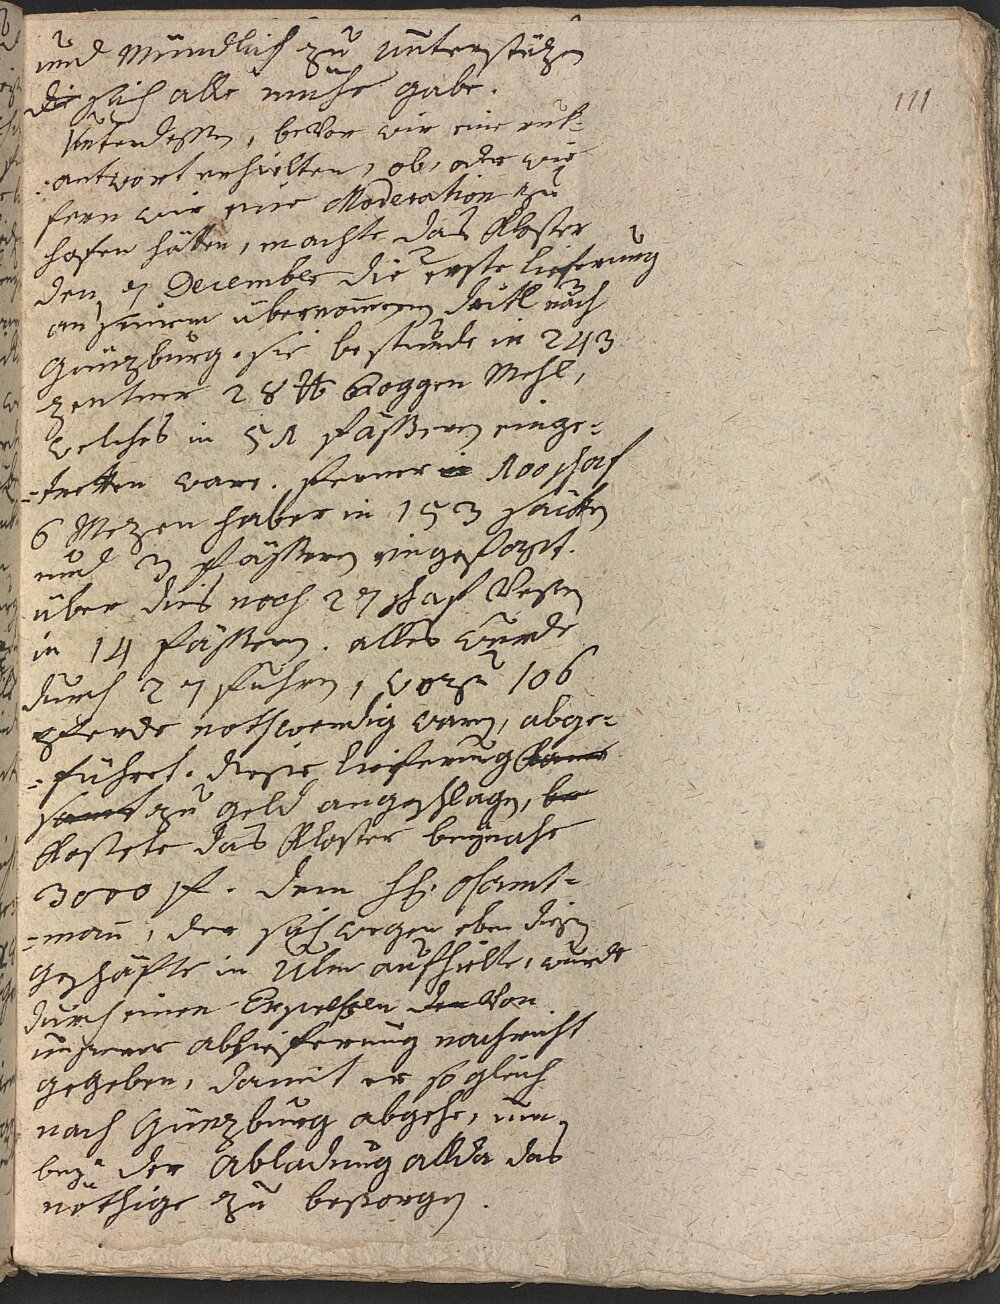 und mündlich zu unterstüzen
sich alle mühe gabe.
111
Unterdessen, bevor wir eine rük-
-antwort erhielten, ob, oder wie
fern wir eine Moderation zu
hofen hätten, machte das Kloster
den 7 December die erste Lieferung
an seinem übernommenen nach
Günzburg. sie bestunde in 243
zentner 28 ℔ Roggen Mehl,
welches in 51 fässern einge-
-tretten ware. ferner in 100 schaf
6 Mezen haber in 153 säken
und 3 fässern eingefasst.
über dies noch 27 schaf Vesen
in 14 fässern. alles wurde
durch 27 fuhren, wozu 106
pferde nothwendig waren, abge-
-führet. diese lieferung kame
samt zu geld angeschlagen, be
kostete das Kloster beynahe
3000 f. dem H. Oberamt-
-mann, der sich wegen eben diesen
geschäfte in Ulm aufhielte, wurde
durch einen Expressen den von
unserer ablieferung nachricht
gegeben, damit er sogleich
nach Günzburg abgehe, um
bey der abladung allda das
nöthige zu besorgen.